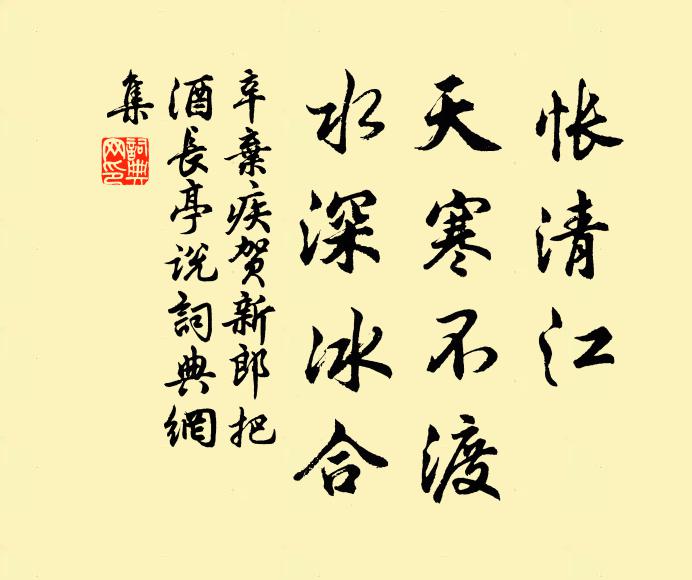 怅清江
天寒不渡
水深冰合
辛棄疾贺新郎把
酒長亭说詞典網
集
詞典
网印